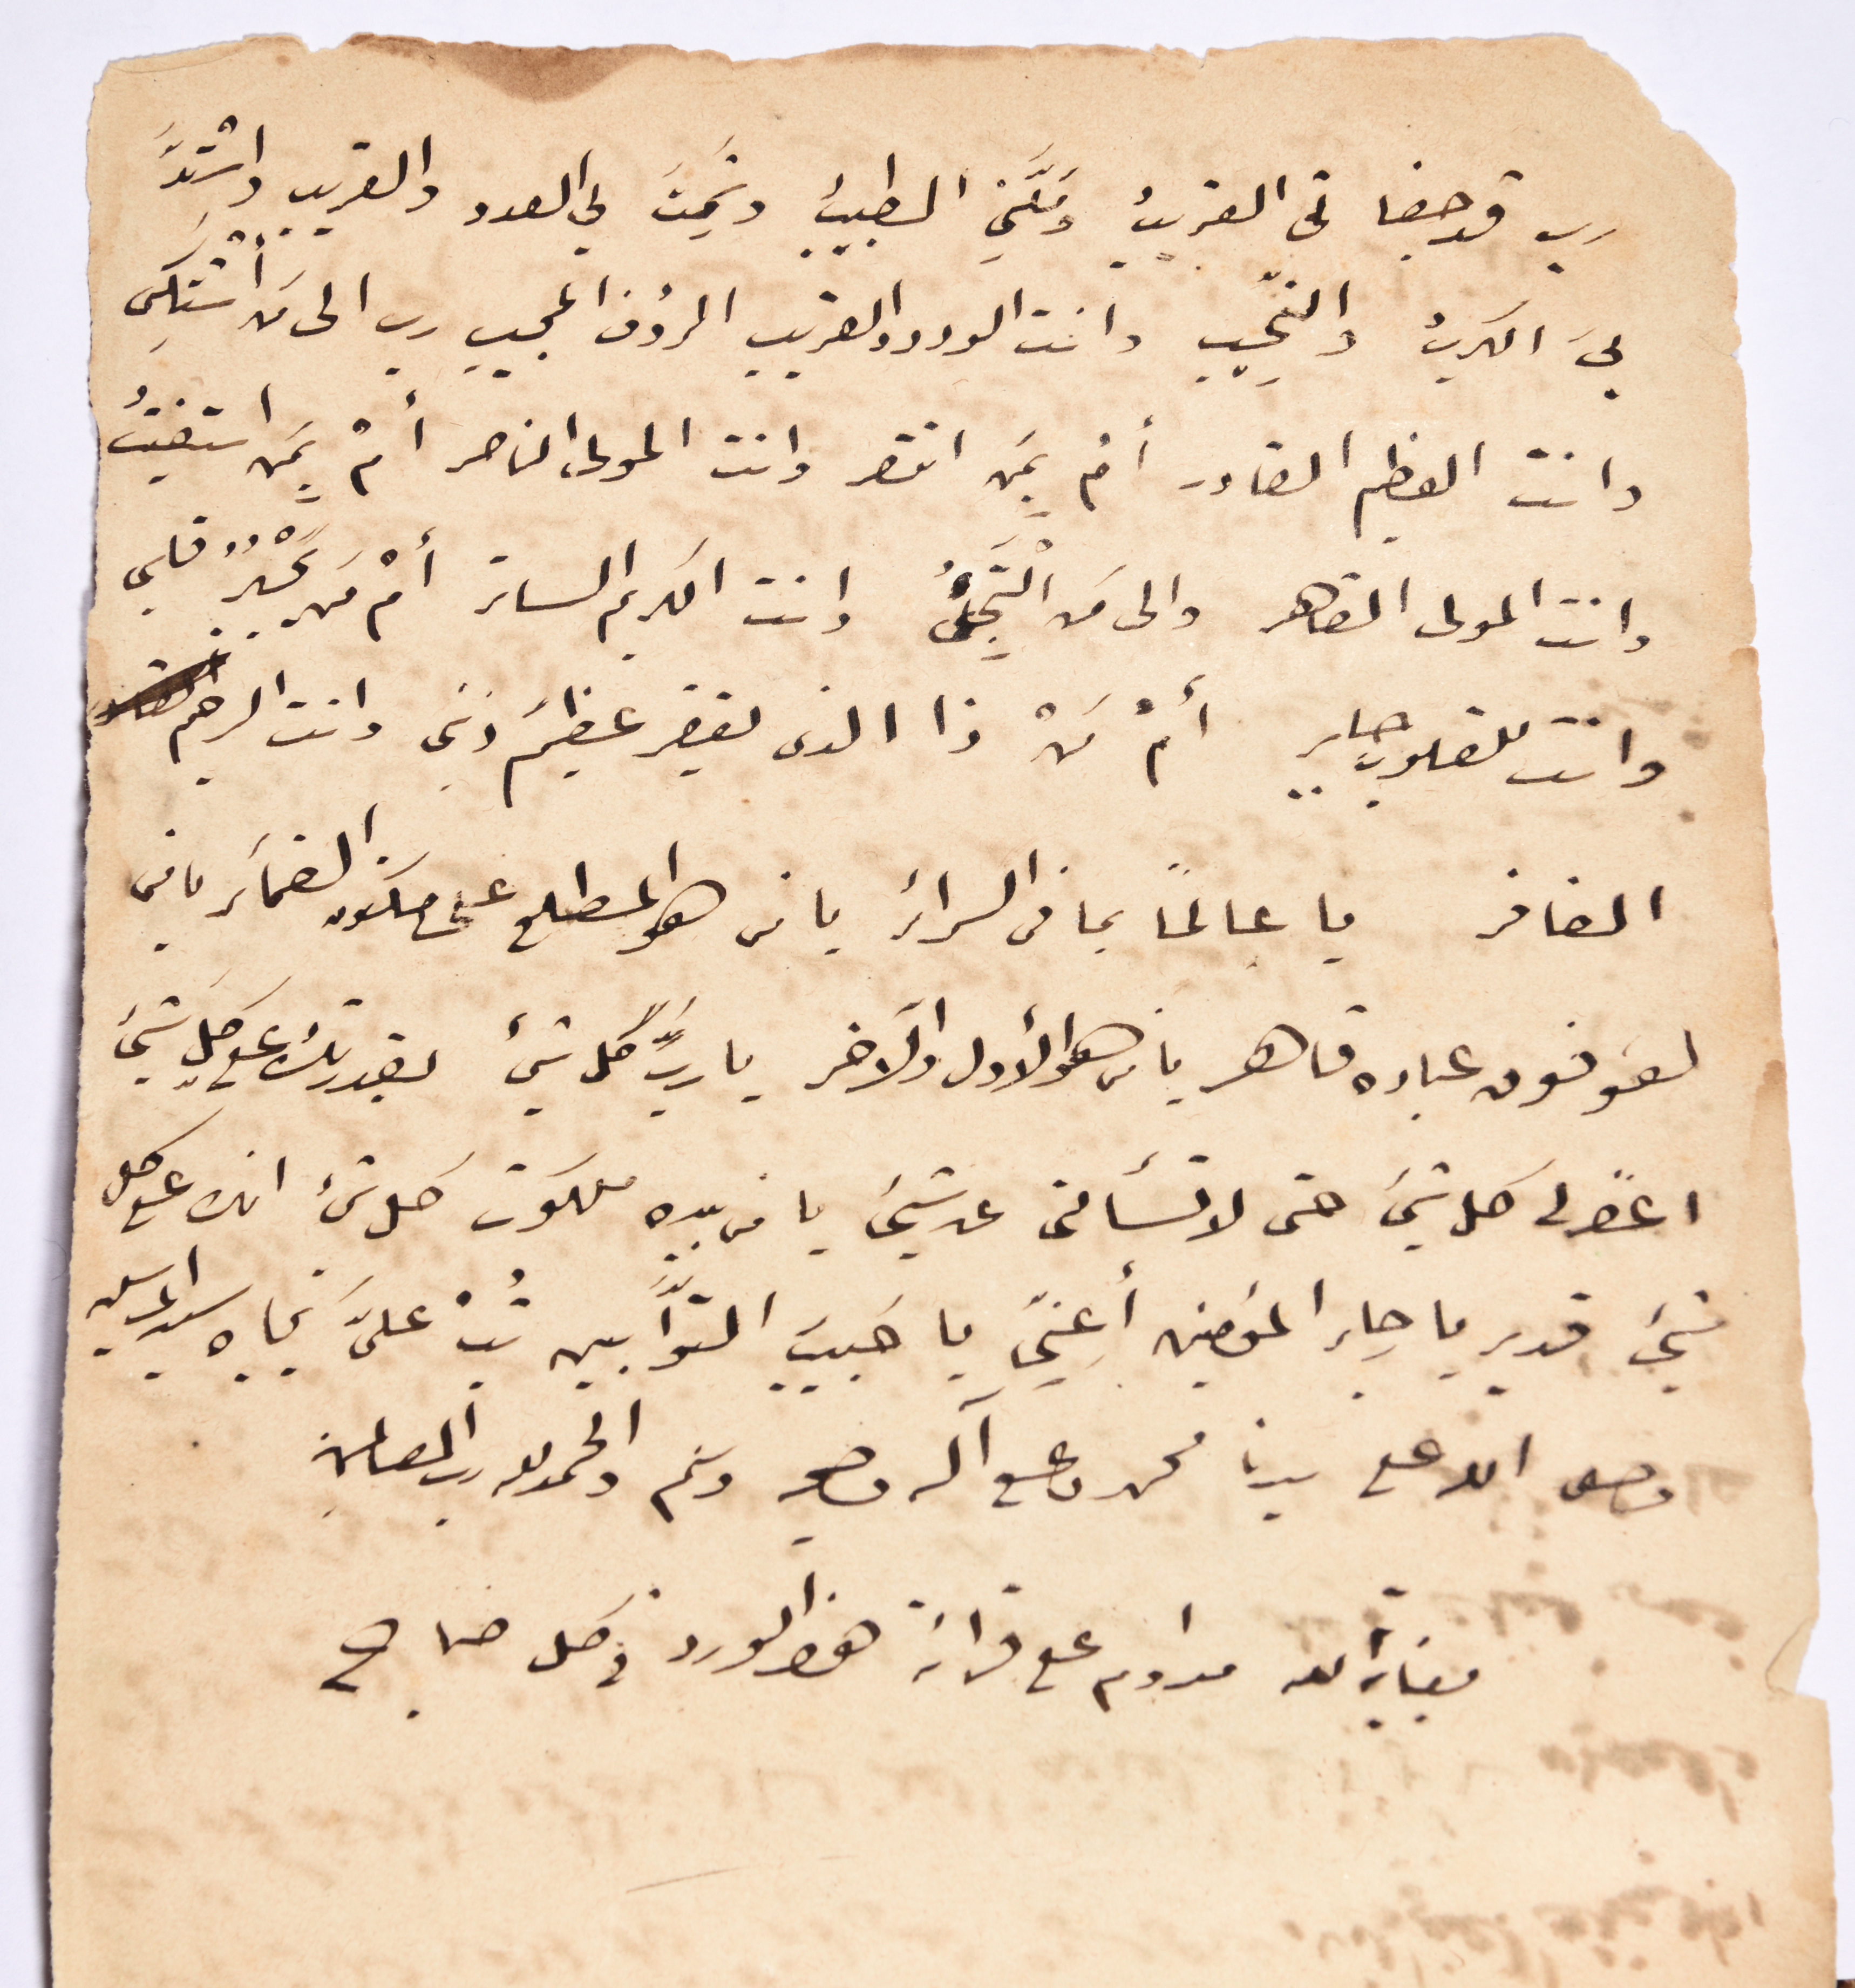 رب قد جفانى القريبُ ومَلَّنِي الطبيبُ وشَمِتَ بي العدو والقريب واشْتدَّ
بيَ الكربُ والنَّحِيب وانت الودود القريب الرؤف المجيب رب الى مَن أشْتَكِى
وانت العظيم القادر أم بِمَن انتصر وانت المولى الناصر أمْ بِمَن استغيثُ
وانت المولى القاهر والى مَن الْتَجِىُٔ وانت الكريم الساتر أمْ مَن يَجْبُرُ قلبى
وانت للقلوب جابر أمْ مَنْ ذا الذى يغفر عظيمَ ذنبى وانت الرحيم
الغافر يا عالمًا بما فى السرائر يا من هو المطلع على مكنون الضمائر يا من
هو فوق عباده قاهر يا من هو الأول والآخر يا ربَّ كل شئ بقدرتك على كلِ شئ
اغفر لى كل شئ حتى لا تسألنى عن شئ يا من بيده ملكوت كل شئ انك على كل
شئ قدير يا جابر المؤمنين أغِثني يا حَبيبَ التوَّابين تُبْ علىَّ بجاه سيد المرسلين
وصلى الله على سيدنا محمد وعلى آله وصحبه وسلم والحمد لله رب العالمين
بعناية الله مداوم على قرائة هذا الورد فى كل صباح